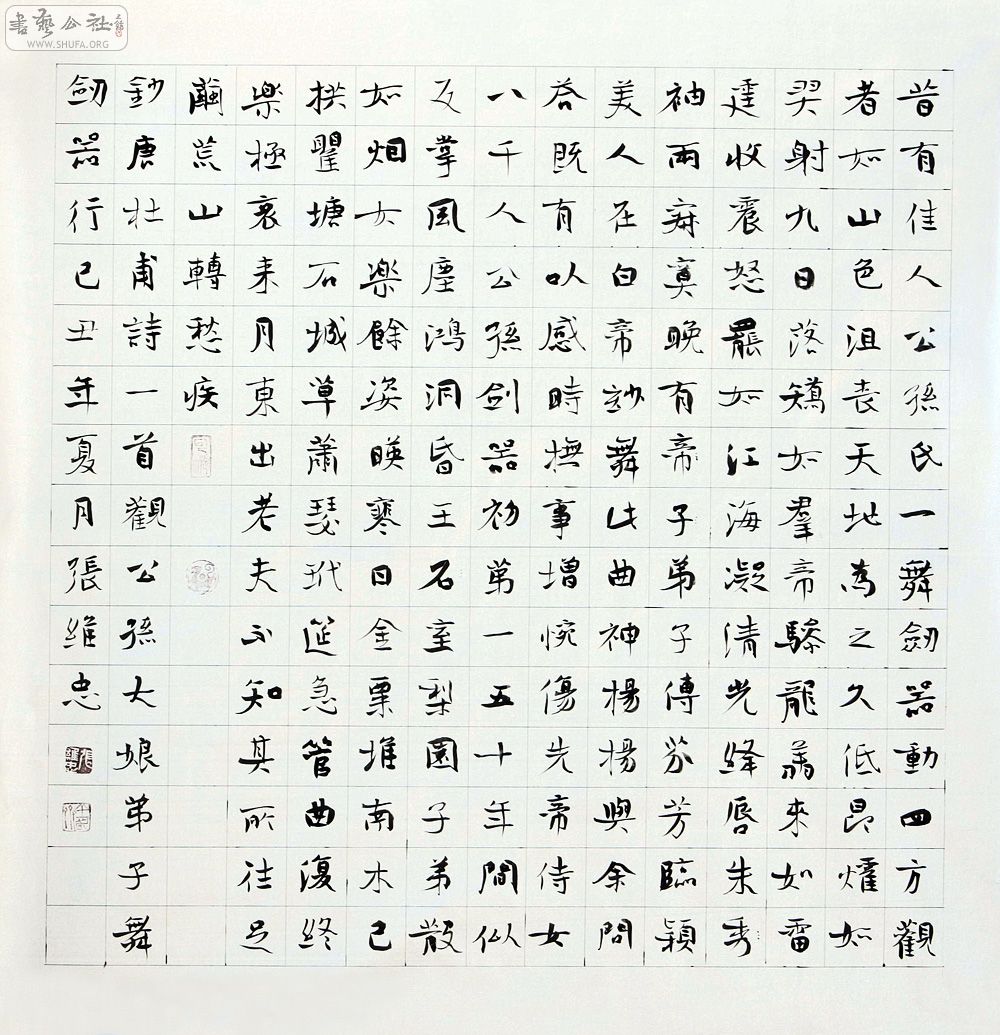 書藝公社
WWW.SHUFA.ORG
昔有佳人公孫氏一舞劒器動四方觀
者如山色沮喪天地為之久低昂燿如
羿射九日落矯如羣帝驂龍翔來如雷
霆收震怒罷如江海凝清光絳唇朱秀
袖兩寂寞晚有帝子弟子傳芬芳臨穎
美人在白帝妙舞此曲神揚揚與余問
荅既有以感時撫事增惋傷先帝侍女
八千人公孫劍器初第一五十年間似
反掌風塵鴻洞昏王石室梨園子弟散
如烟女樂餘姿映寒日金粟堆南木已
拱瞿塘石城草蕭瑟玳筵急管曲復終
樂極哀来月東出老夫不知其所往足
繭荒山轉愁疾
鈔唐杜甫詩一首觀公孫大娘弟子舞
劒器行己丑年夏月張維忠